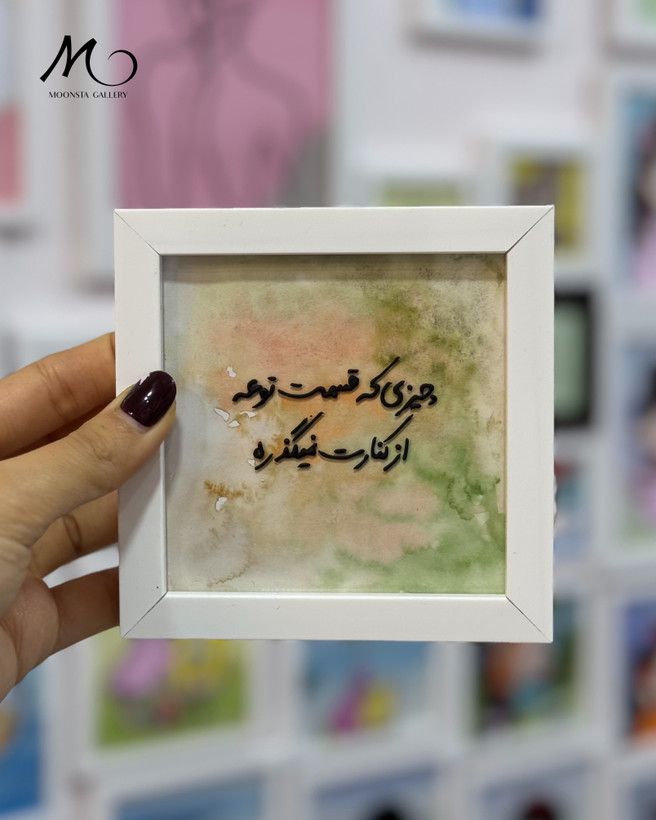 M
MOONSTA GALLERY
چیزی که قسمت توعه
از کنارت نمیگذره